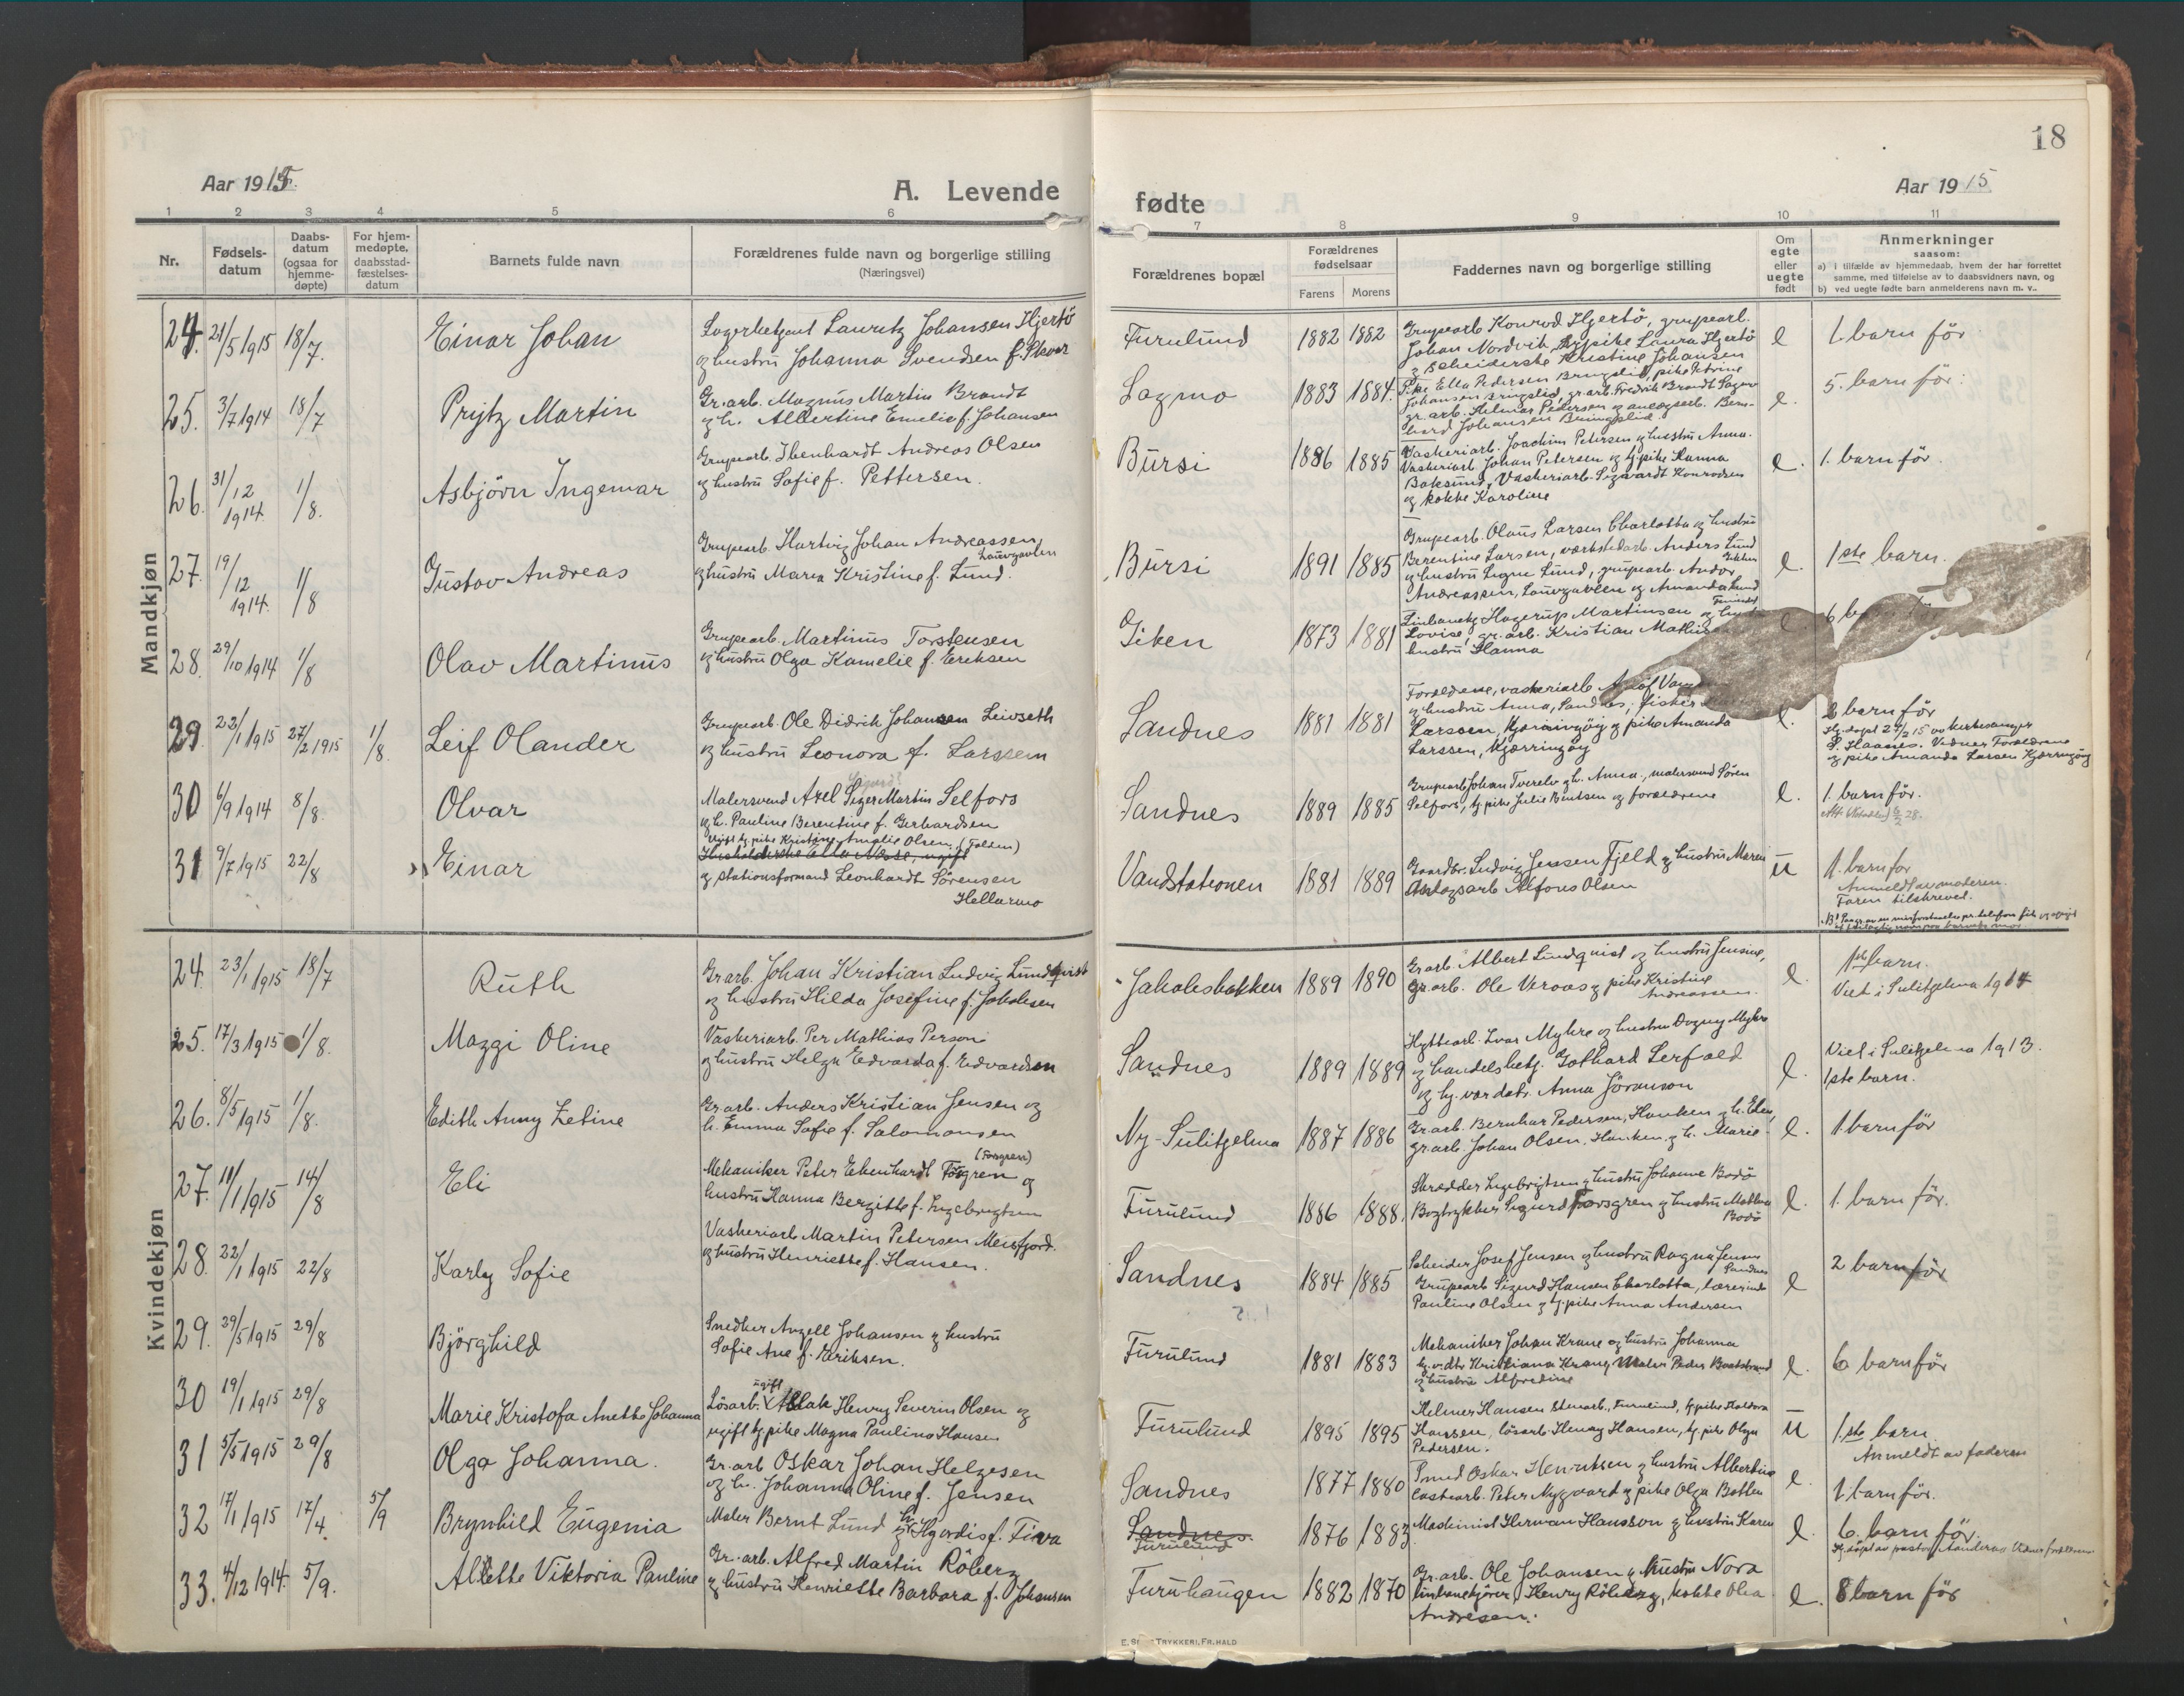 18
Aar 1915.
A. Levende
fødte
Aar 1915
1 2 3 4 5 6 7 8 9 10 11
Nr.
Fødsels-
datum
Daabs-
datum
(ogsaa for
hjemme-
døpte)
For hjem-
medøpte,
daabsstad-
fæstelses-
datum
Barnets fulde navn
Forældrenes fulde navn og borgerlige stilling
(Næringsvei)
Forældrenes bopæl
Forældrenes
fødselsaar
Farens Morens
Faddernes navn og borgerlige stilling
Om
egte
eller
uegte
født
Anmerkninger
saasom:
a) i tilfælde av hjemmedaab, hvem der har forrettet
samme, med tilføielse av to daabsvidners navn, og
b) ved uegte fødte barn anmelderens navn m. v..
Mandkjøn
24. 21/5 1915 18/7. Einar Johan
Lagerbetjent Lauritz Johansen Hjertö
og hustru Johanna Svendsen f. Skover
Furulund 1882 1882
Grupearb. Konrad Hjertö, grupearb.
Johan Nordvik, tj.pike Laura Hjertö
og Scheiderske Kristine Johansen
e 1. barn för
25. 3/7 1914 18/7 Prytz Martin
Gr. arb. Magnus Martin Brandt
og h. Albertine Emelie f. Johansen
Lagmo 1883 1884.
Pike Ella Pedersen Bringslid, pike Petrine
Johansen Bringslid, gr. arb. Fredrik Brandt Lagmo
gr. arb. Helmar Pedersen og anlægsarb. Bern-
hard Johansen Bringslid
e. 5. barn för.
26. 31/12 1914. 1/8. Asbjörn Ingemar
Grupearb. Ibenhardt Andreas Olsen
og hustru Sofie f. Pettersen.
Bursi 1886 1885
Vaskeriarb. Joachim Petersen og hustru Anna.
Vaskeriarb. Johan Petersen og tj.pike Hanna
Baksund, Vaskeriarb. Sigvardt Konradsen
og kokke Karoline
e. 1. barn för.
27. 19/12 1914. 1/8 Gustav Andreas
Grupearb. Hartvig Johan Andreassen,
Laurgavlen
og hustru Maria Kristine f. Lund.
Bursi 1891 1885
Grupearb. Olaus Larsen Charlotta og hustru
Berentine Larsen, værkstedarb. Anders Lund
og hustru Signe Lund, grupearb. Andor
Andreassen, Laurgavlen og Amanda Lund
e. 1ste barn.
28. 29/10 1914 1/8 Olav Martinus
Grupearb. Martinus Torstensen
og hustru Olga Kamelie f. Eriksen
Giken 1873 1881
Hagerup Martinsen og
Lovise, gr. arb. Kristian
hustru Hanna
29. 23/1 1915 27/2 1915 1/8. Leif Olander
Grupearb. Ole Didrik Johansen Leivseth
og hustru Leonora f. Larssen
Sandnes 1881 1881
Forældrene, vaskeriarb.
og hustru Anna, Sandnes, fisker
Larssen, Kjærringöy og pike Amanda
Larssen, Kjærringöy
e. 2 barn för
Hj.döpt 27/2 15 av kirkesanger
S. Haanes. Vidner Forældrene
og pike Amanda Larsen Kjærringöy
30 6/9 1914 8/8. Olvar
Malersvend Axel Martin Selfors
og h. Pauline Berentine f. Gerhardsen
Sandnes 1889 1885
Grupearb. Johan Tverelv og h. Anna, malersvend Sören
Selfors, tj.pike Julie Bentsen og forældrene
e. 1. barn för.
31 9/7 1915 22/8 Einar
Ugift tj.pike Kristine Amalie Olsen, (Folden)
Husholderske Ella Næss, ugift
og stationsformand Leonhardt Sörensen
Hellarmo
Vandstationen 1881 1889
Gaardbr. Ludvig Jensen Fjeld og hustru Maren
Anlægsarb Alfons Olsen
u 1. barn for
Anmeldt av moderen.
Faren tilskreved.
Kvindekjøn
24. 23/1 1915 18/7 Ruth
Gr arb. Johan Kristian Ludvig Lundquist
og hustru Hilda Josefine f. Jakobsen
Jakobsbakken 1889 1890
Gr arb. Albert Lundquist og hustru Jensine,
gr. arb. Ole Veraas og pike Kristine
Andreassen.
e. 1ste barn.
Viet i Sulitjelma 1914
25. 17/3 1915 1/8. Maggi Oline
Vaskeriarb. Per Mathias Person
og hustru Helga Edvarda f. Edvardsen
Sandnes 1889 1889
Hyttearb. Ivar Myhre og hustru Dagny Myhre
og handelsbetj. Gothard Lerfald
og hj.vær. datr. Anna Jöranson
e. Viet i Sulitjelma 1913.
1ste barn.
26. 8/5 1915 1/8. Edith Anny Zetine
Gr arb. Anders Kristian Jensen og
h. Emma Sofie f. Salomonsen
Ny-Sulitjelma 1887 1886
Gr. arb. Bernhar Pedersen, Hanken og h. Elen,
gr. arb. Johan Olsen, Hanken og h. Marie
e. 1. barn för
27. 11/1 1915 14/8 Eli
(Forsgren)
Mekaniker Peter Ebenhardt Forsgren og
hustru Hanna Bergitte f. Ingebrigtsen
Furulund 1886 1888.
Skrædder Ingebrigtsen og hustru Johanne Bodö
Bogtrykker Sigurd Forsgren og hustru Mathea
Bodö
e. 1. barn för.
28. 22/1 1915 22/8 Karly Sofie
Vaskeriarb Martin Petersen Mersfjord.
og hustru Henriette f. Hansen.
Sandnes 1884 1885
Scheider Josef Jensen og hustru Ragna Jensen
Sandnes
Grupearb Sigurd Hansen Charlotta, lærerinde
Pauline Olsen og tj.pike Anna Andersen
e 2 barn för
29. 29/5 1915 29/8 Björghild
Snedker Angell Johansen og hustru
Sofie Ane f. Eriksen.
Furulund 1881 1883
Mekaniker Johan Krane og hustru Johanna
Kristiana Krane, Maler Peder Baatstrand
og hustru Alfredine
e. 6 barn för
30 19/1 1915 29/8 Marie Kristofa Anette Johanna
ugift
Lösarb. Aslak Henry Severin Olsen og
ugift tj.pike Magna Pauline Hansen
Furulund 1895 1895
Helmer Hansen stenarb., Furulund, tj.pike Haldora
Hanssen, lösarb. Henry Hansen, tj.pike Olga
Pedersen.
u 1ste barn
Anmeldt av faderen
31 5/5 1915 29/8 Olga Johanna.
Gr. arb Oskar Johan Helgesen
og h. Johanna Oline f. Jensen
Sandnes 1877 1880
Smed Oskar Henriksen og hustru Albertine
Peter Nygaard og pike Olga Botten
e. 1. barn för.
32 17/1 1915 17/4. 5/9 Brynhild Eugenia
Maler Bernt Lund og h. Hjördis f. Finva
Sandnes.
Furulund
1876 1883
Maskinist Herman Hansson og hustru Karen
e. 6. barn för.
33. 4/12 1914. 5/9. Alette Viktoria Pauline
Gr. arb. Alfred Martin Röberg
og hustru Henriette Barbara f. Johansen
Furuhaugen 1882 1870
Gr. arb. Ole Johansen og hustru Nora
linbanekjörer Henry Röberg, kokke Olea
Andresen.
e. 8 barn för
TRYKKERI, FR. HALD